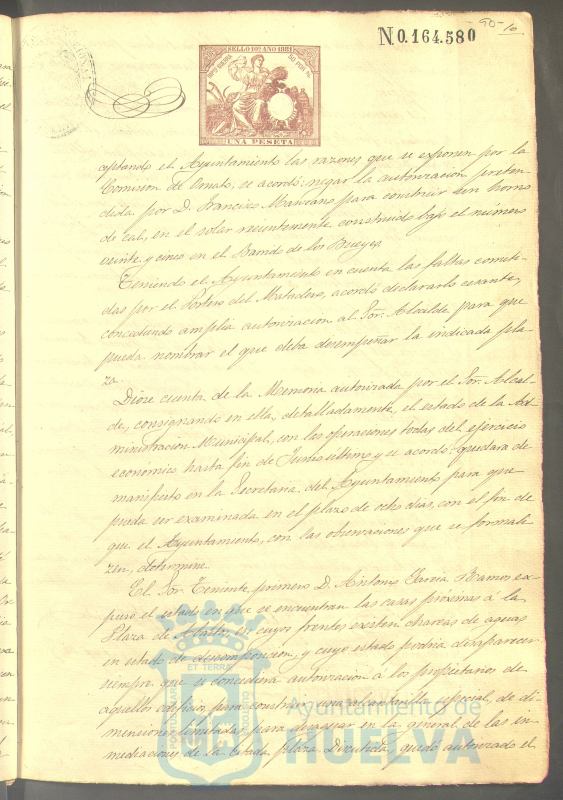 - 90 - 10
N 0.164.580
SELLO 10º AÑO 1881
UNA PESETA
ceptando el Ayuntamiento las razones que se exponen por la
Comision de Ornato, se acordó: negar la autorizacion preten-
dida por D. Francisco Manzano para construir un horno
de cal, en el solar recientemente construido bajo el número
veinte y cinco en el Barrio de los Bueyes.
Teniendo el Ayuntamiento en cuenta las faltas cometi-
das por el Portero del Matadero, acordó declararlo cesante,
concediendo amplia autorizacion al Sor. Alcalde para que
pueda nombrar el que deba desempeñar la indicada pla-
za.
Diose cuenta de la Memoria autorizada por el Sor. Alcal-
de, consignando en ella, detalladamente, el estado de la Ad-
ministracion Municipal, con las operaciones todas del ejercicio
economico hasta fin de Junio último y se acordó: quedara de
manifiesto en la Secretaría del Ayuntamiento para que
pueda ser examinada en el plazo de ocho dias, con el fin de
que el Ayuntamiento, con las observaciones que se formali-
zen, determine.
El Sor. Teniente primero D. Antonio Garcia Ramos ex-
puso el estado en que se encuentran las casas próximas á la
Plaza de Abastos, en cuyos frentes existen charcas de aguas
en estado de descomposicion, y cuyo estado podria desaparecer
siempre que se concediera autorizacion á los propietarios de
aquellos edificios para construir una alcantarilla especial, de di-
mensiones limitadas, para desaguar en la general de las in-
mediaciones de la citada plaza. Discutida, quedó autorizado el
PORTUS MARIS
ET TERRÆ
CUSTODIA
Ayuntamiento de
HUELVA